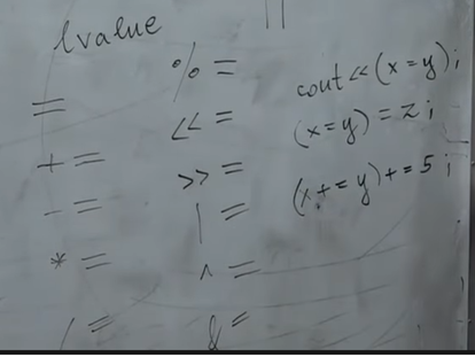 lvalue
=
+=
-=
*=
/=
%=
<<=
>>=
|=
^=
&=
cout << (x=y);
(x=y) = z;
(x+=y)+=5;